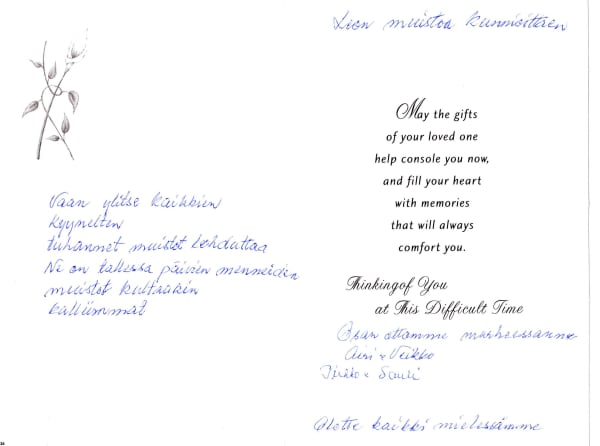 Vaan ylitse kaikkien
kyynelten
tuhannet muistot lohduttaa
Ne on tallessa päivien menneiden
muistot kultaakin
kalliimmat
Leon muistoa kunnioittaen
May the gifts
of your loved one
help console you now,
and fill your heart
with memories
that will always
comfort you.
Thinking of You
at This Difficult Time
Osan ottamme murheessanne
Airi + Veikko
Pirkko + Sauli
Olette kaikki mielessämme